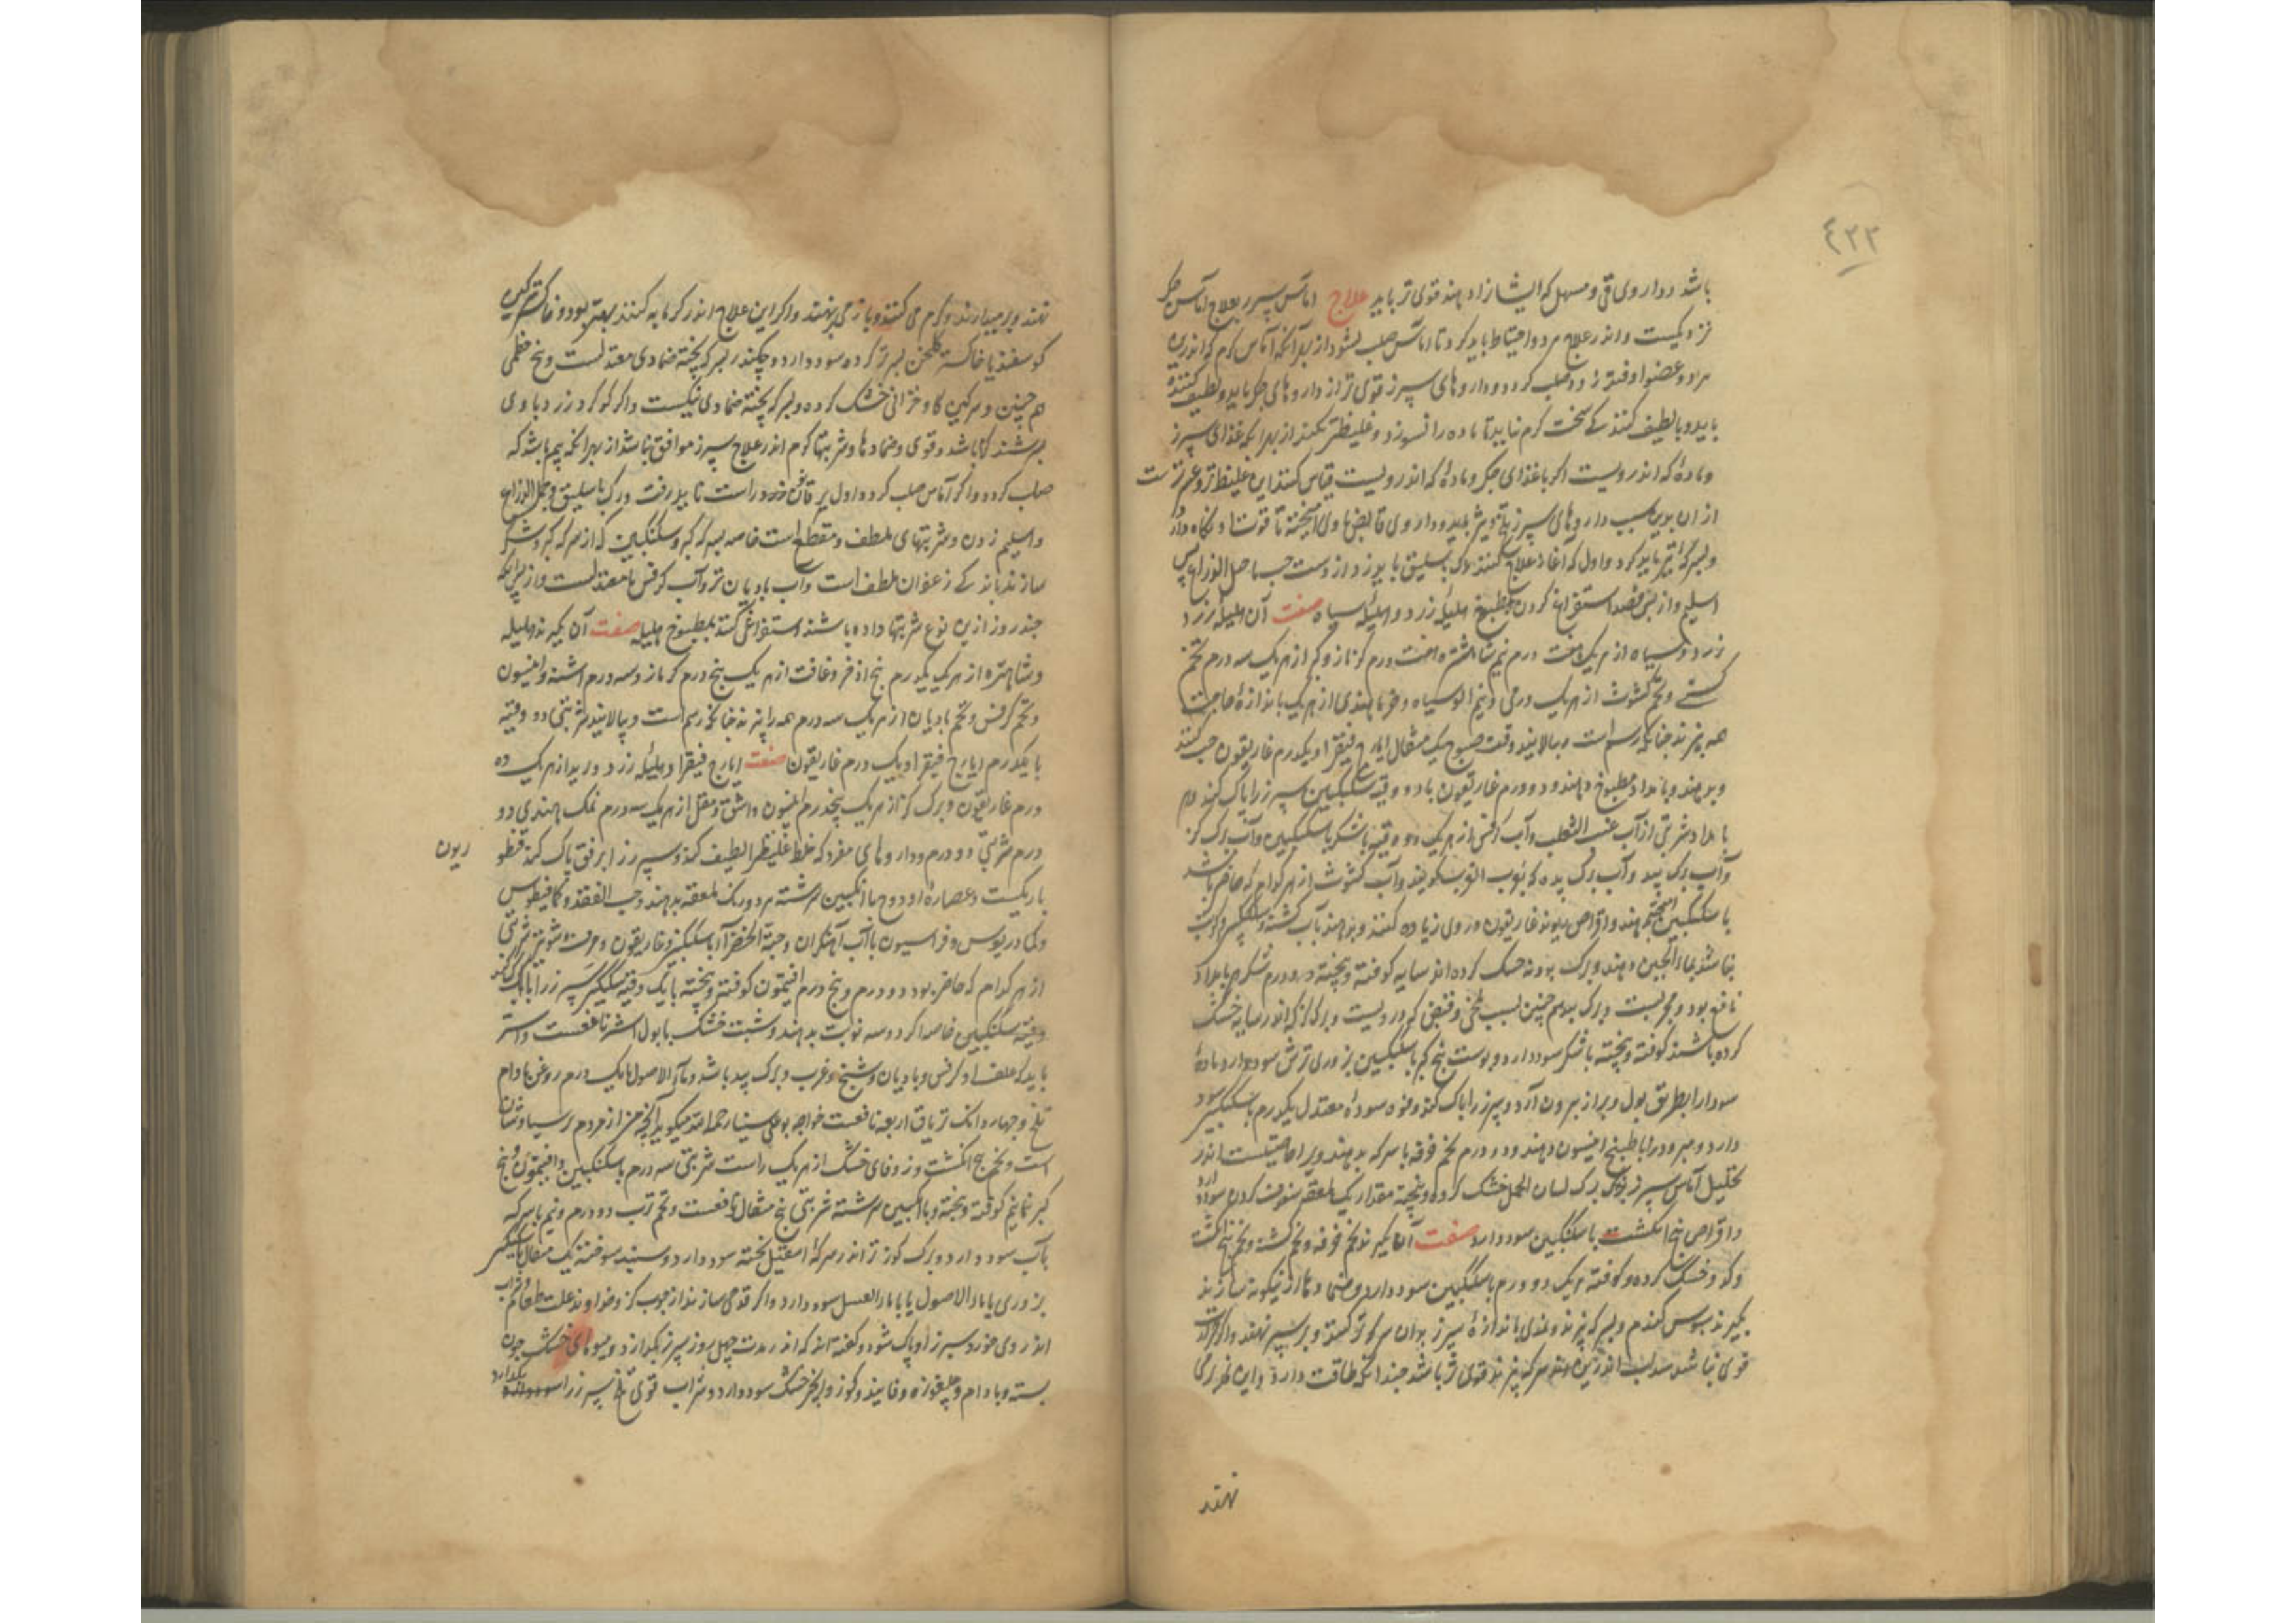 ٤٣٣
باشد و داروی قی و مسهل که ایشان را دهند قوی تر باید علاج اماس سپرز بعلاج آماس جکر
نزدیکست و اندر علاج هر دو احتیاط باید کرد تا اماس صلب نشود از بهر آنکه آماس کرم که اندرین
هر دو عضو اوفتد زود صلب کردد و داروهای سپرز قوی تر از داروهای جکر باید و لطیف کننده
باید و با لطیف کنندکی سخت کرم نباید تا ماده را نسوزد و غلیظتر نکند از بهر آنکه غذای سپرز
و مادۀ که اندر ویست اکر با غذای جکر و مادۀ که اندر ویست قیاس کنند این غلیظ تر و
از ان بدین سبب داروهای سپرز باید و داروی قابض با وی آمیخته تا قوت او نکاه دارد
و بسرکه تیز باید کرد و اول که آغاز علاج کنند رک باسلیق باید زد از دست جب یا حبل الذراع پس
اسلیم و از پس فصد استفراغ کردن بمطبوخ هلیلۀ زرد و هلیلۀ سیاه صفت آن هلیلۀ زرد
زرد و سیاه از هر یک هفت درم نیم شاهتره هفت درم کزمازو از هر یک سه درم تخم
کسنی و تخم کشوث از هر یک درمی و نیم الو سیاه و خرما هندی از هر یک باندازۀ حاجت
همه بپزند جنانکه رسم است و بپالایند وقت صبح یک مثقال ایارج فیقرا و یکدرم غاریقون حب کنند
و بدهند و بامداد مطبوخ دهند و دو درم غاریقون با دو وقیه سکنکبین سپرز را پاک کند و هر
بامداد شربتی از آب عنب الثعلب و آب کرفس از هر یک دو وقیه با شکر یا سکنکبین و آب برک کز
و آب برک بید و آب برک پده که بثوب الثوب کویند و آب کشوث از هر کدام که حاضر باشد
با سکنکبین دهند و اقراص ریوند غاریقون در وی زیاده کنند و بدهند بآب کشنه و
نباشد بماء الجبن دهند و برک بودنه خشک کرده اندر سایه کوفته و پخته دو درم شکر هر بامداد
نافع بود و مجربست و برک بید هم چنین بسبب تلخی و قبض که در ویست و برک کز که اندر سایه خشک
کرده باشند کوفته و پخته با شکر سود دارد و پوست بیخ کبر با سکنکبین بزوری ترش سود دارد مادۀ
سودا را بطریق بول و براز بیرون آرد و سپرز را پاک کند و فوه سودۀ معتدل یکدرم با سکنکبین سود
دارد و مبرود را با طبیخ انیسون دهند و دو درم تخم خرفه با سرکه بدهند ویرا خاصیتست اندر
تحلیل آماس سپرز برک لسان الحمل خشک کرده و پخته مقدار یک ملعقه سفوف کردن سود دارد
و اقراص بنج انکشت با سکنکبین سود دارد صفت آن بکیرند تخم خرفه و تخم کشنه و تخم بنج انکشت
و کدو خشک کرده و کوفته هر یک دو درم با سکنکبین سود دارد و ضمادها ازین کونه سازند
بکیرند سبوس کندم و بسرکه بپزند و نمدی باندازۀ سپرز بدان سرکه تر کنند و بر سپرز نهند و اکر
قوی نباشد سداب اندرین سرکه بپزند قوی تر باشد جندانکه طاقت دارد و این نمد را کرم
نهند
نهند و بر میدارند و کرم می کنند و باز می نهند و اکر این علاج اندر کرمابه کنند بهتر بود و خاکستر سرکین
کوسفند یا خاکستر کلخن بسرکه تر کرده سود دارد و جکندر بسرکه پخته ضمادی معتدلست و بیخ خطمی
هم جنین و سرکین کاو خزانی خشک کرده و بسرکه پخته ضمادی نیکست و اکر کوکرد زرد با وی
بسرشند باشد و قوی و ضمادها و شربتها کرم اندر علاج سپرز موافق نباشد از بهر آنکه بیم باشد که
صلب کردد و اکر آماس صلب کردد اول بر قانون راست باید رفت و رک باسلیق و حبل الذراع
و اسلیم زدن و شربتهای ملطف و مقطع است خاصه سرکه کبر و سکنکبین که از سرکه کبر و شکر
سازند باندکی زعفران ملطف است و آب بادیان تر و آب کرفس معتدلست و از پس آنکه
جند روز ازین نوع شربتها داده باشند استفراغی کنند بمطبوخ هلیله صفت آن بکیرند هلیله
و شاهتره از هر یک یکدرم بیخ اذخر و غافت از هر یک پنج درم کزمازو سه درم اشنه و انیسون
و تخم کرفس و تخم بادیان از هر یک سه درم همه را بپزند جنانکه رسم است و بپالایند شربتی دو وقیه
با یکدرم ایارج فیقرا و یک درم غاریقون صفت ایارج فیقرا و هلیلۀ زرد و تربد از هر یک ده
درم غاریقون و برک کز از هر یک پنجدرم انیسون و اشق و مقل از هر یک سه درم نمک هندی دو
درم شربتی دو درم و داروهای مفرد که خلط غلیظ را لطیف کند و سپرز را برفق پاک کند قنطو
ریون
باریکست و عصارۀ او و هر دو با انکبین سرشته هر دو یک ملعقه بدهند و حب الفقد و کمافیطوس
و کمادریوس و فراسیون با آب آهنکران و حبة الخضرا با سکنکبین و غاریقون و حرف شونیز شربتی
از هر کدام که حاضر بود دو درم و پنج درم افتیمون کوفته و پخته با یک وقیه سکنکبین سپرز را پاک کند
وقیه سکنکبین خاصه اکر دو سه نوبت بدهند و شبت خشک با بول اشتر نافعست و اشتر
باید که علف او کرفس و بادیان و شیح و غرب و برک بید باشد و ماء الاصول با یک درم روغن بادام
تلخ و جهار دانک تریاق اربعه نافعست خواجه بوعلی سینا رحمه الله میکوید آنجه من ازمودم پرسیاوشان
است و تخم بنج انکشت و زوفای خشک از هر یک راست شربتی سه درم با سکنکبین و افتیمون و بیخ
کبر نیم کوفته و پخته و با انکبین سرشته شربتی پنج مثقال نافعست و تخم ترب دو درم و نیم با سرکه
بآب سود دارد و برک کوز تر اندر سرکۀ اسقیل پخته سود دارد و سپند سوخته یک مثقال با سکنکبین
بزوری یا با ماء الاصول یا با ماء العسل سود دارد و اکر قدحی سازند از جوب کز و خداوند علت طعام و شراب
اندر وی خورد سپرز او پاک شود و کفته اند که اندر مدت جهل روز سپرز بکدازد و میوهای خشک جون
پسته و بادام و جلغوزه و فانیذ و کوز و انجیر خشک سود دارد و شراب قوی تلخ سپرز را